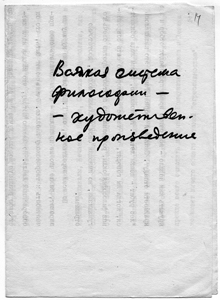 Всякая система
философии —
— художествен-
ное произведение